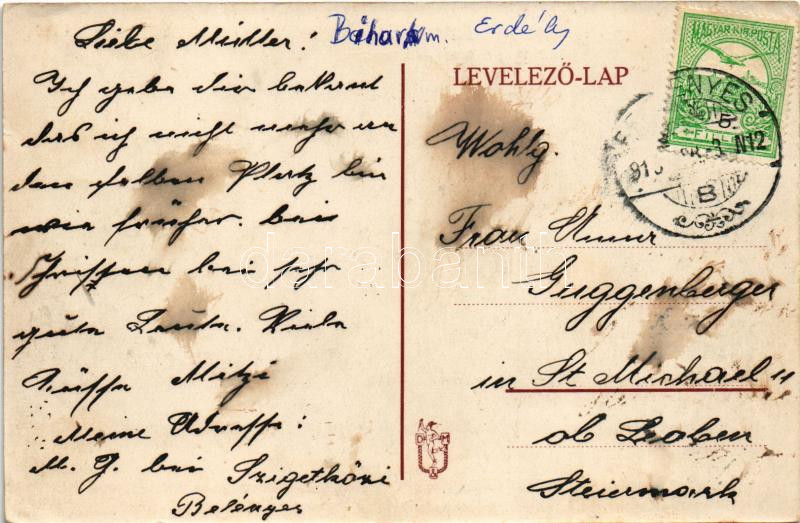 Liebe Mutter!
Biharm. Erdély
Ich gebe dir bekant
das ich nicht mehr an
den selben Platz bin
wie früher. bin
bei sehr
gute Leute. Viele
Küsse Mitzi
Meine Adresse:
M. G. bei Szigetközi
Belényes
LEVELEZŐ-LAP
MAGYAR KIR. POSTA
NYES
B
Wohlg.
Frau Anna
Guggenberger
in St Michael
ob Leoben
Steiermark
darabanth